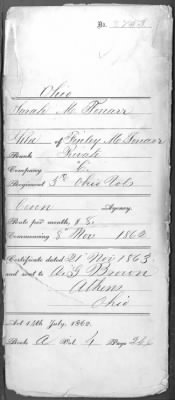 No. 2753
Ohio
Sarah M.
of Finley M.
Rank Private
Company
Regiment 3d Ohio Vols
Agency.
Rate per month, $ 8.
Commencing 8 Nov 1862
Certificate dated 21 Nov 1863
and sent to A. G. Brown
Athens
Ohio
Act 14th July, 1862.
Book A Vol 4 Page